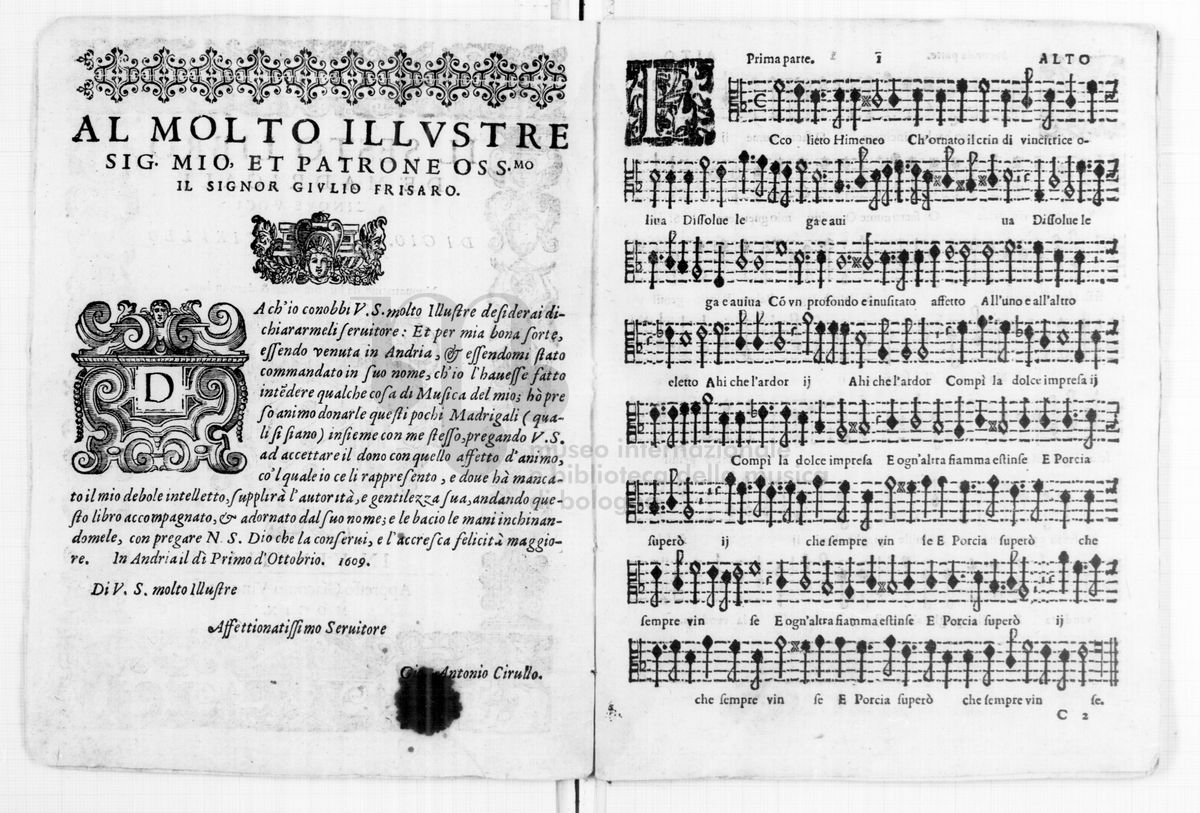 AL MOLTO ILLVSTRE
SIG. MIO, ET PATRONE OSS.MO
IL SIGNOR GIVLIO FRISARO.
DA ch'io conobbi V. S. molto Illustre desiderai di-
chiararmeli seruitore: Et per mia bona sorte,
essendo venuta in Andria, & essendomi stato
commandato in suo nome, ch'io l'hauesse fatto
intēdere qualche cosa di Musica del mio; hò pre
so animo donarle questi pochi Madrigali (qua-
li si siano) insieme con me stesso, pregando V. S.
ad accettare il dono con quello affetto d'animo,
co'l quale io ce li rappresento, e doue hà manca-
to il mio debole intelletto, supplirà l'autorità, e gentilezza sua, andando que-
sto libro accompagnato, & adornato dal suo nome; e le bacio le mani inchinan-
domele, con pregare N. S. Dio che la conserui, e l'accresca felicità maggio-
re. In Andria il dì Primo d'Ottobrio. 1609.
Di V. S. molto Illustre
Affettionatissimo Seruitore
Antonio Cirullo.
Prima parte. 1 ALTO
ECco lieto Himeneo Ch'ornato il crin di vincitrice o-
liua Dissolue le ga e aui ua Dissolue le
ga e auiua Cō vn profondo e inusitato affetto All'uno e all'altro
eletto Ahi che l'ardor ij Ahi che l'ardor Compì la dolce impresa ij
Compì la dolce impresa E ogn'altra fiamma estinse E Porcia
superò ij che sempre vin se E Porcia superò che
sempre vin se E ogn'altra fiamma estinse E Porcia superò ij
che sempre vin se E Porcia superò che sempre vin se.
C 2
museo internazionale
e biblioteca della musica
di bologna